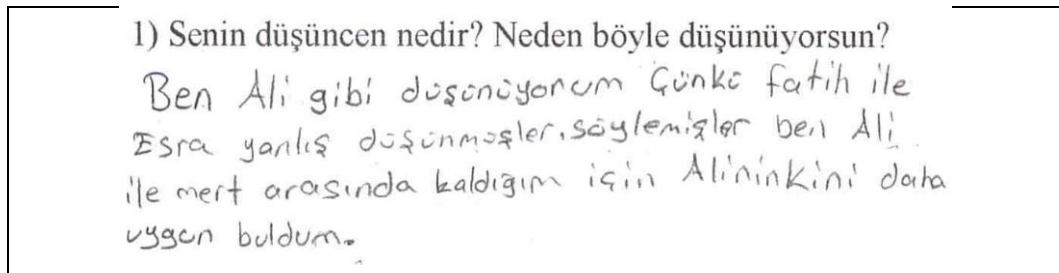 1) Senin düşüncen nedir? Neden böyle düşünüyorsun?
Ben Ali gibi düşünüyorum Çünkü fatih ile
Esra yanlış düşünmüşler, söylemişler ben Ali
ile mert arasında kaldığım için Alininkini daha
uygun buldum.